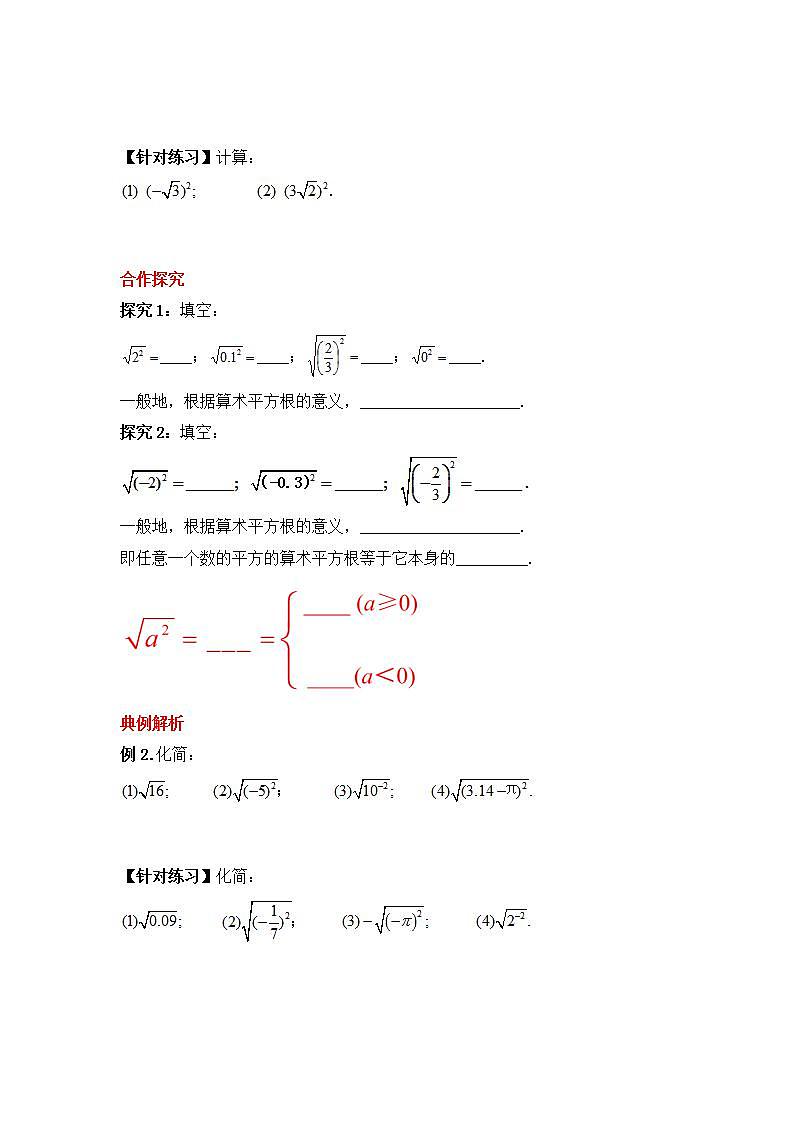 【针对练习】计算：
(1) (−√3)²;  (2) (3√2)².
合作探究
探究1：填空：
√2² =____；√0.1² =____；√(2/3)² =____；√0² =____.
一般地，根据算术平方根的意义，____________________.
探究2：填空：
√(−2)² =______；√(−0.3)² =______；√(−2/3)² =______.
一般地，根据算术平方根的意义，____________________.
即任意一个数的平方的算术平方根等于它本身的_________.
____ (a≥0)
√a² = ___ = {
____(a＜0)
典例解析
例2.化简：
(1)√16;  (2)√(−5)²;  (3)√10⁻²;  (4)√(3.14−π)².
【针对练习】化简：
(1)√0.09;  (2)√(−1/7)²;  (3)−√(−π)²;  (4)√2⁻².